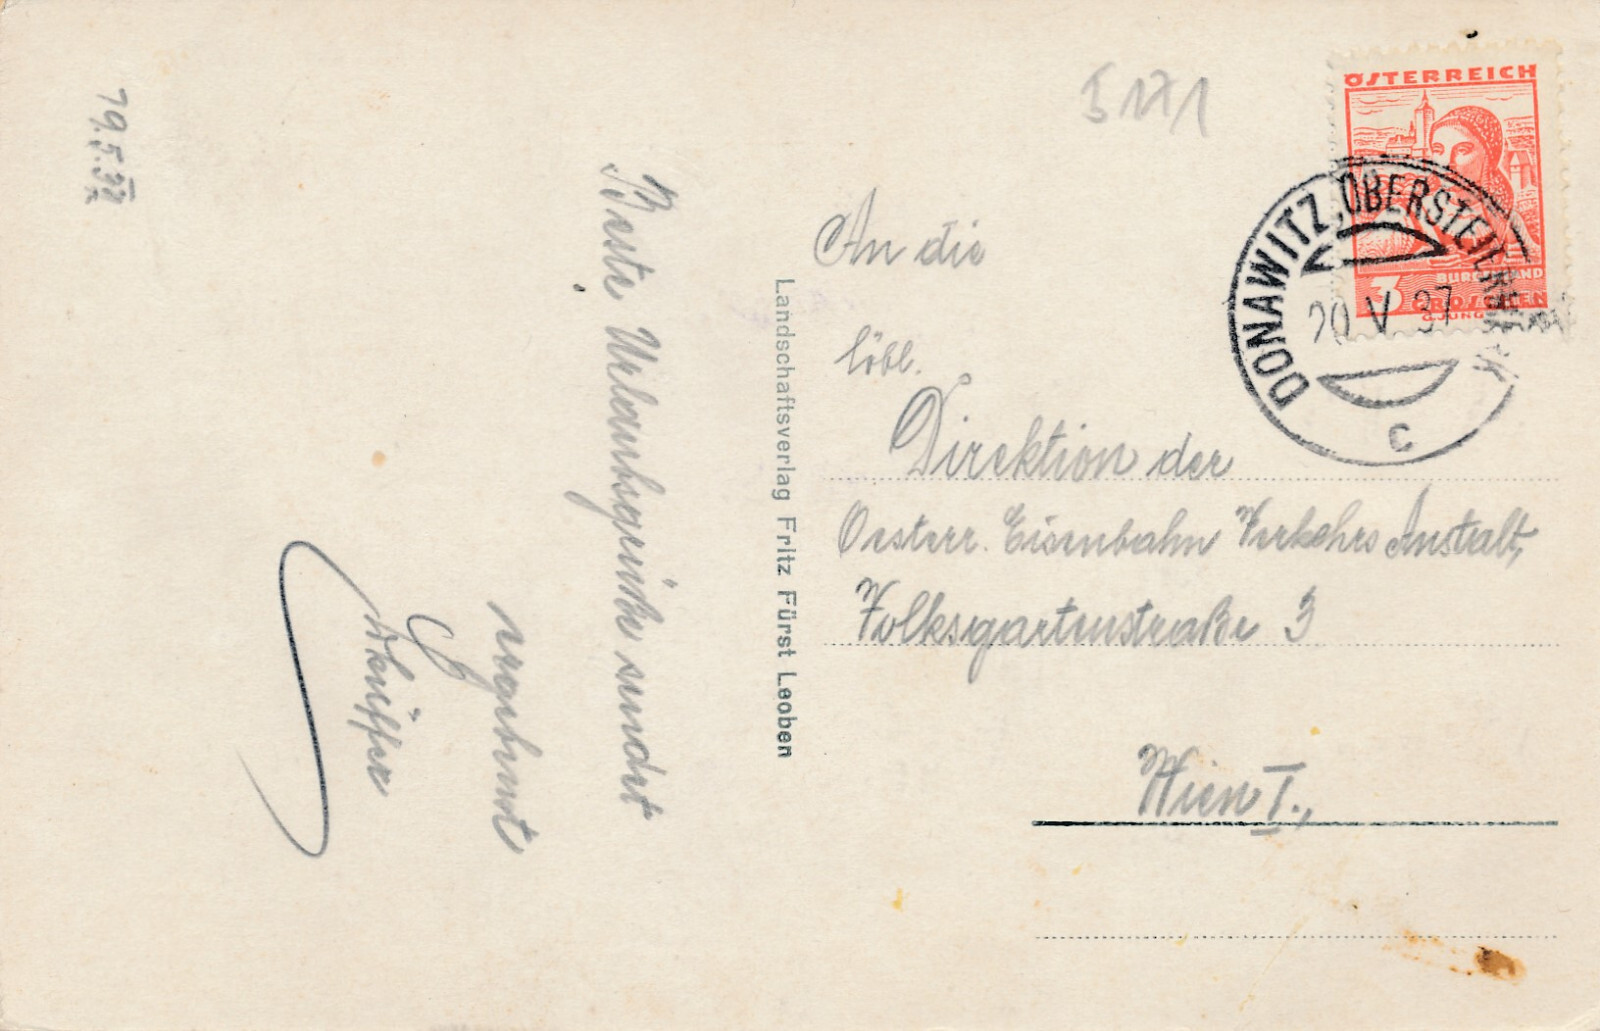 19.5.37
Beste Urlaubsgrüße sendet
ergebenst
5171
An die
löbl.
Direktion der
Oesterr. Eisenbahn Verkehrs Anstalt,
Volksgartenstraße 3
Wien I.,
Landschaftsverlag Fritz Fürst Leoben
ÖSTERREICH
BURGENLAND
3 GROSCHEN
DONAWITZ, OBERSTEIERMARK
20 V 37
C